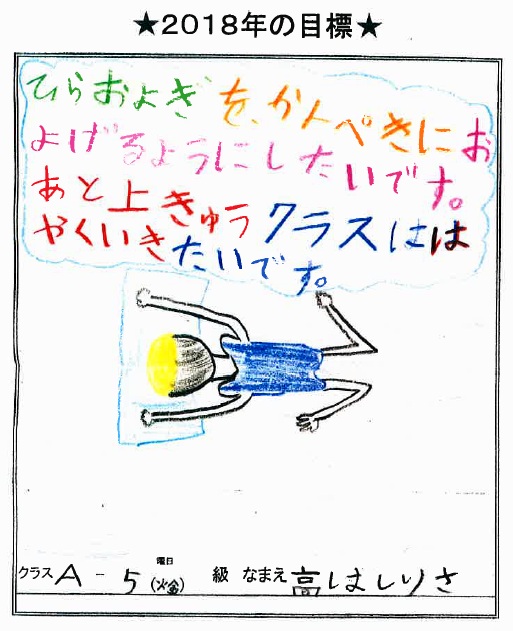 ★2018年の目標★
ひらおよぎを、かんぺきにお
よげるようにしたいです。
あと上きゅうクラスには
やくいきたいです。
クラス A - 5 曜日(火金) 級 なまえ 高はしりさ